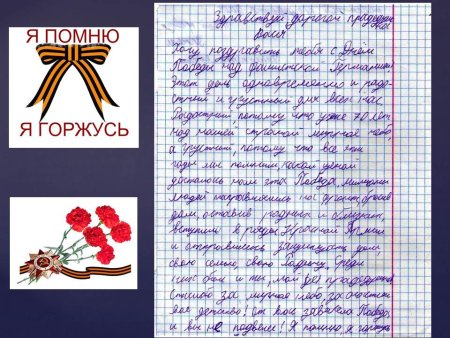 Я ПОМНЮ
Я ГОРЖУСЬ
Здравствуй дорогой прадедушка
Вася
Хочу поздравить тебя с Днём
Победы над фашистской Германией
Этот день одновременно и радо-
стный и грустный для всех нас
Радостный, потому что уже 70 лет
над нашей страной мирное небо,
а грустный, потому что все эти
годы мы помним, какой ценой
досталась нам эта Победа, миллионы
людей направились на фронт, бросив
дом, оставив родных и близких,
вступили в ряды Красной Армии
и отправились защищать дом
свою семью, свою Родину. Среди
них был и ты, мой прадедушка
Спасибо за мирное небо, за счастли
вое детство! От вас зависела Победа
и вы не подвели! Я помню, я горжусь